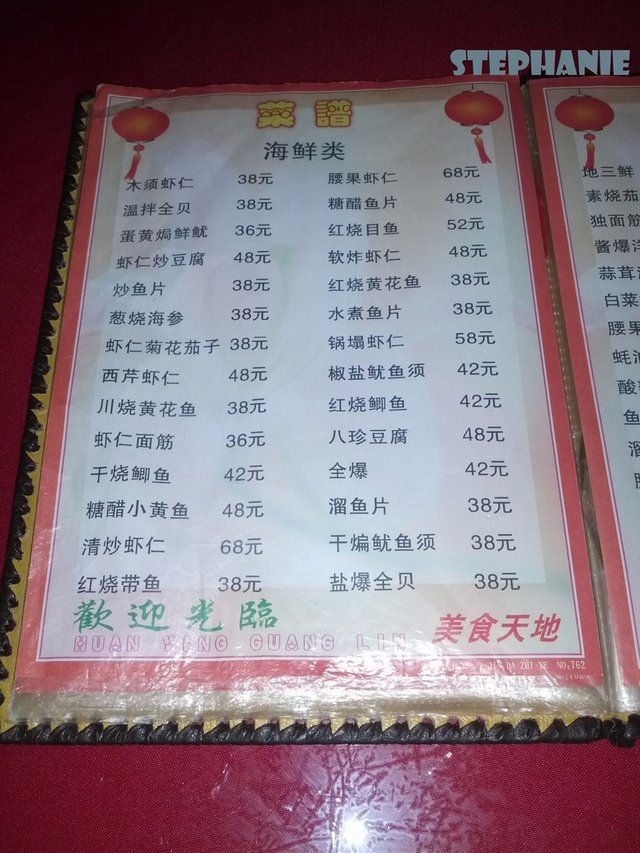 STEPHANIE
菜譜
海鲜类
木须虾仁 38元 腰果虾仁 68元
温拌全贝 38元 糖醋鱼片 48元
蛋黄焗鲜鱿 36元 红烧目鱼 52元
虾仁炒豆腐 48元 软炸虾仁 48元
炒鱼片 38元 红烧黄花鱼 38元
葱烧海参 38元 水煮鱼片 38元
虾仁菊花茄子 38元 锅塌虾仁 58元
西芹虾仁 48元 椒盐鱿鱼须 42元
川烧黄花鱼 38元 红烧鲫鱼 42元
虾仁面筋 36元 八珍豆腐 48元
干烧鲫鱼 42元 全爆 42元
糖醋小黄鱼 48元 溜鱼片 38元
清炒虾仁 68元 干煸鱿鱼须 38元
红烧带鱼 38元 盐爆全贝 38元
歡迎光臨
HUAN YING GUANG LIN
美食天地
NO:T62
地三鲜
素烧茄
独面筋
酱爆
蒜茸
白菜
腰果
蚝油
酸
鱼
溜
腰